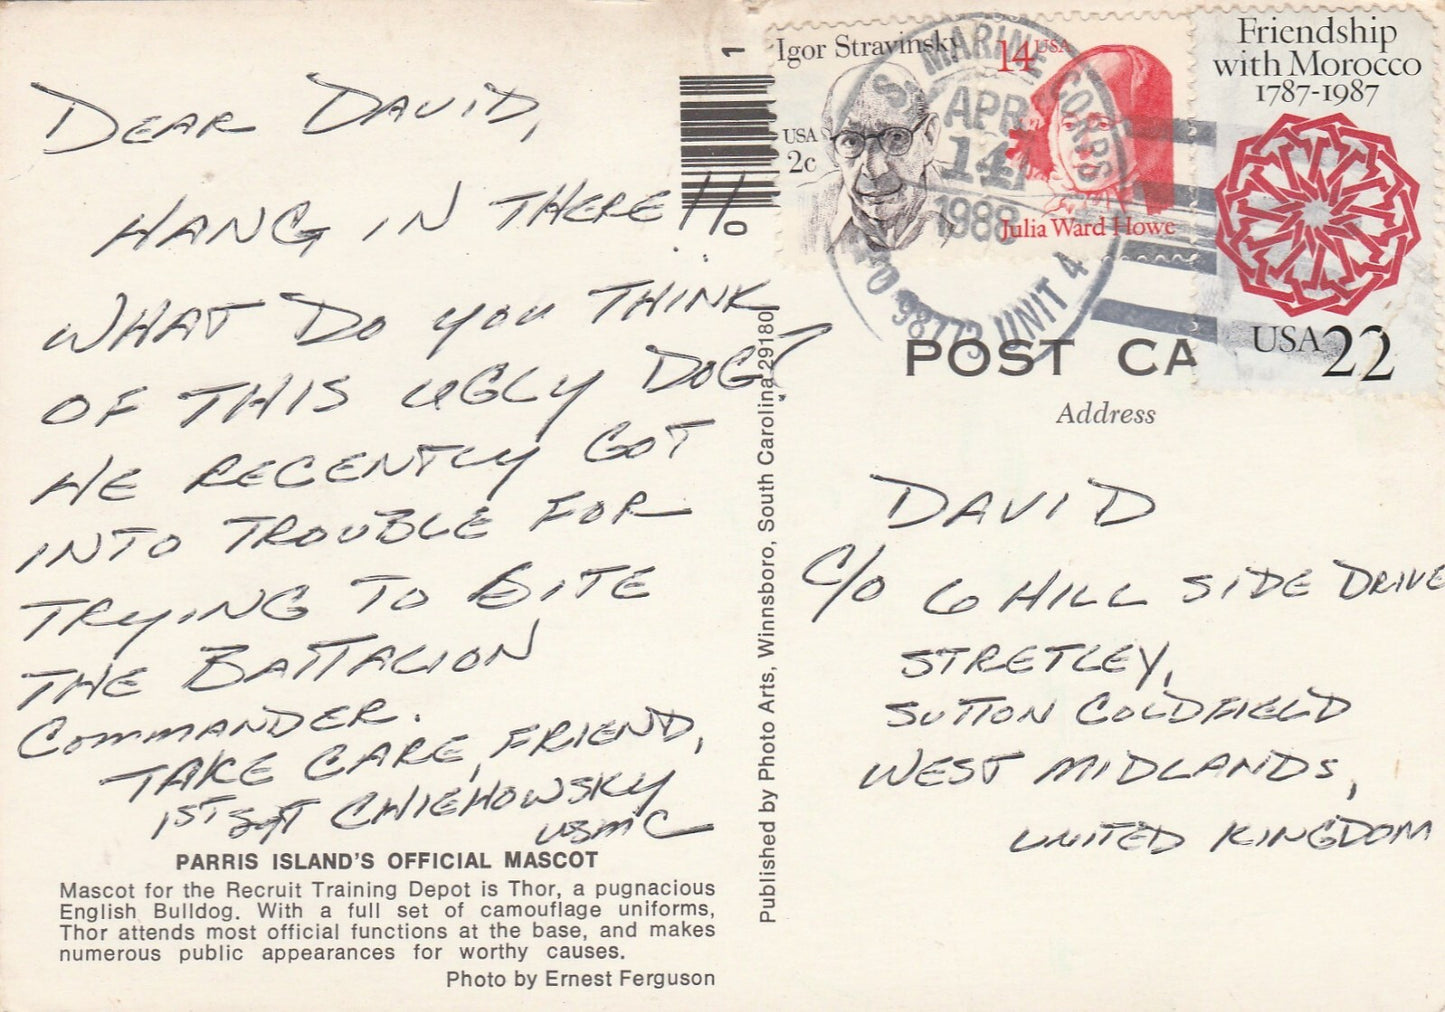 DEAR DAVID,
HANG IN THERE!!
WHAT DO YOU THINK
OF THIS UGLY DOG?
HE RECENTLY GOT
INTO TROUBLE FOR
TRYING TO BITE
THE BATTALION
COMMANDER.
TAKE CARE, FRIEND,
1ST SGT CHIEHOWSKY
USMC
PARRIS ISLAND'S OFFICIAL MASCOT
Mascot for the Recruit Training Depot is Thor, a pugnacious
English Bulldog. With a full set of camouflage uniforms,
Thor attends most official functions at the base, and makes
numerous public appearances for worthy causes.
Photo by Ernest Ferguson
1
0
Published by Photo Arts, Winnsboro, South Carolina 29180
Igor Stravinsky
USA
2c
14 USA
Julia Ward Howe
Friendship
with Morocco
1787-1987
USA 22
S. MARINE CORPS
APR
14
1988
98773 UNIT 4
POST CA
Address
DAVID
C/O 6 HILL SIDE DRIVE
STRETLEY,
SUTTON COLDFIELD
WEST MIDLANDS,
UNITED KINGDOM